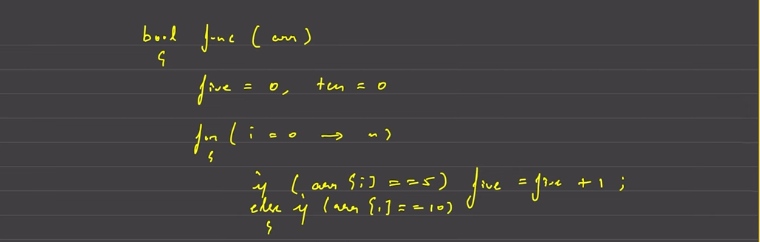 bool func (arr)
{
five = 0, ten = 0
for (i = 0 → n)
{
if (arr[i] == 5) five = five + 1 ;
else if (arr[i] == 10)
{